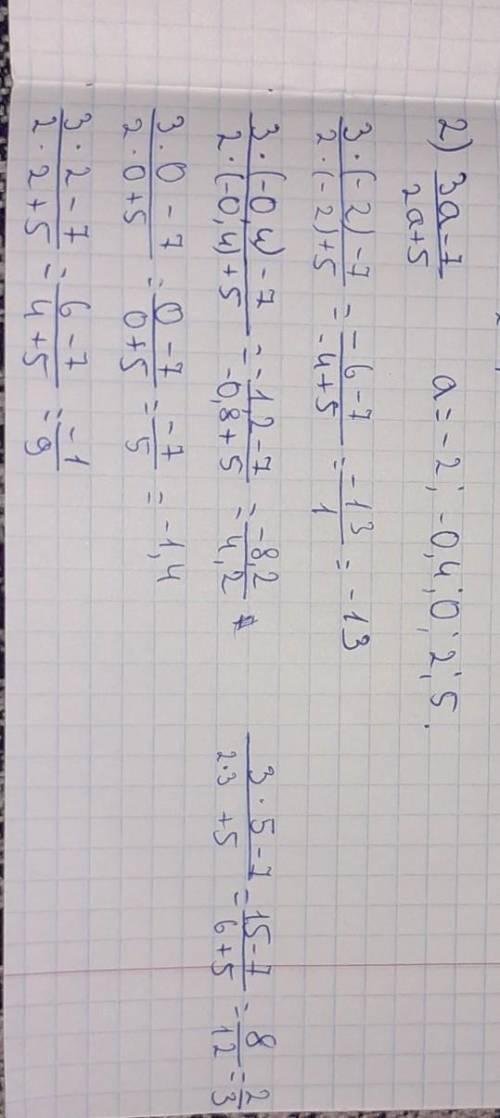 2) (3a-7)/(2a+5)   a = -2; -0,4; 0; 2; 5.
(3·(-2)-7)/(2·(-2)+5) = (-6-7)/(-4+5) = (-13)/1 = -13
(3·(-0,4)-7)/(2·(-0,4)+5) = (-1,2-7)/(-0,8+5) = (-8,2)/(4,2)
(3·0-7)/(2·0+5) = (0-7)/(0+5) = (-7)/5 = -1,4
(3·2-7)/(2·2+5) = (6-7)/(4+5) = (-1)/9
(3·5-7)/(2·3+5) = (15-7)/(6+5) = 8/12 = 2/3